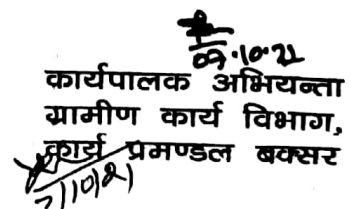 09.10.21
कार्यपालक अभियन्ता
ग्रामीण कार्य विभाग,
कार्य प्रमण्डल बक्सर
7/10/21